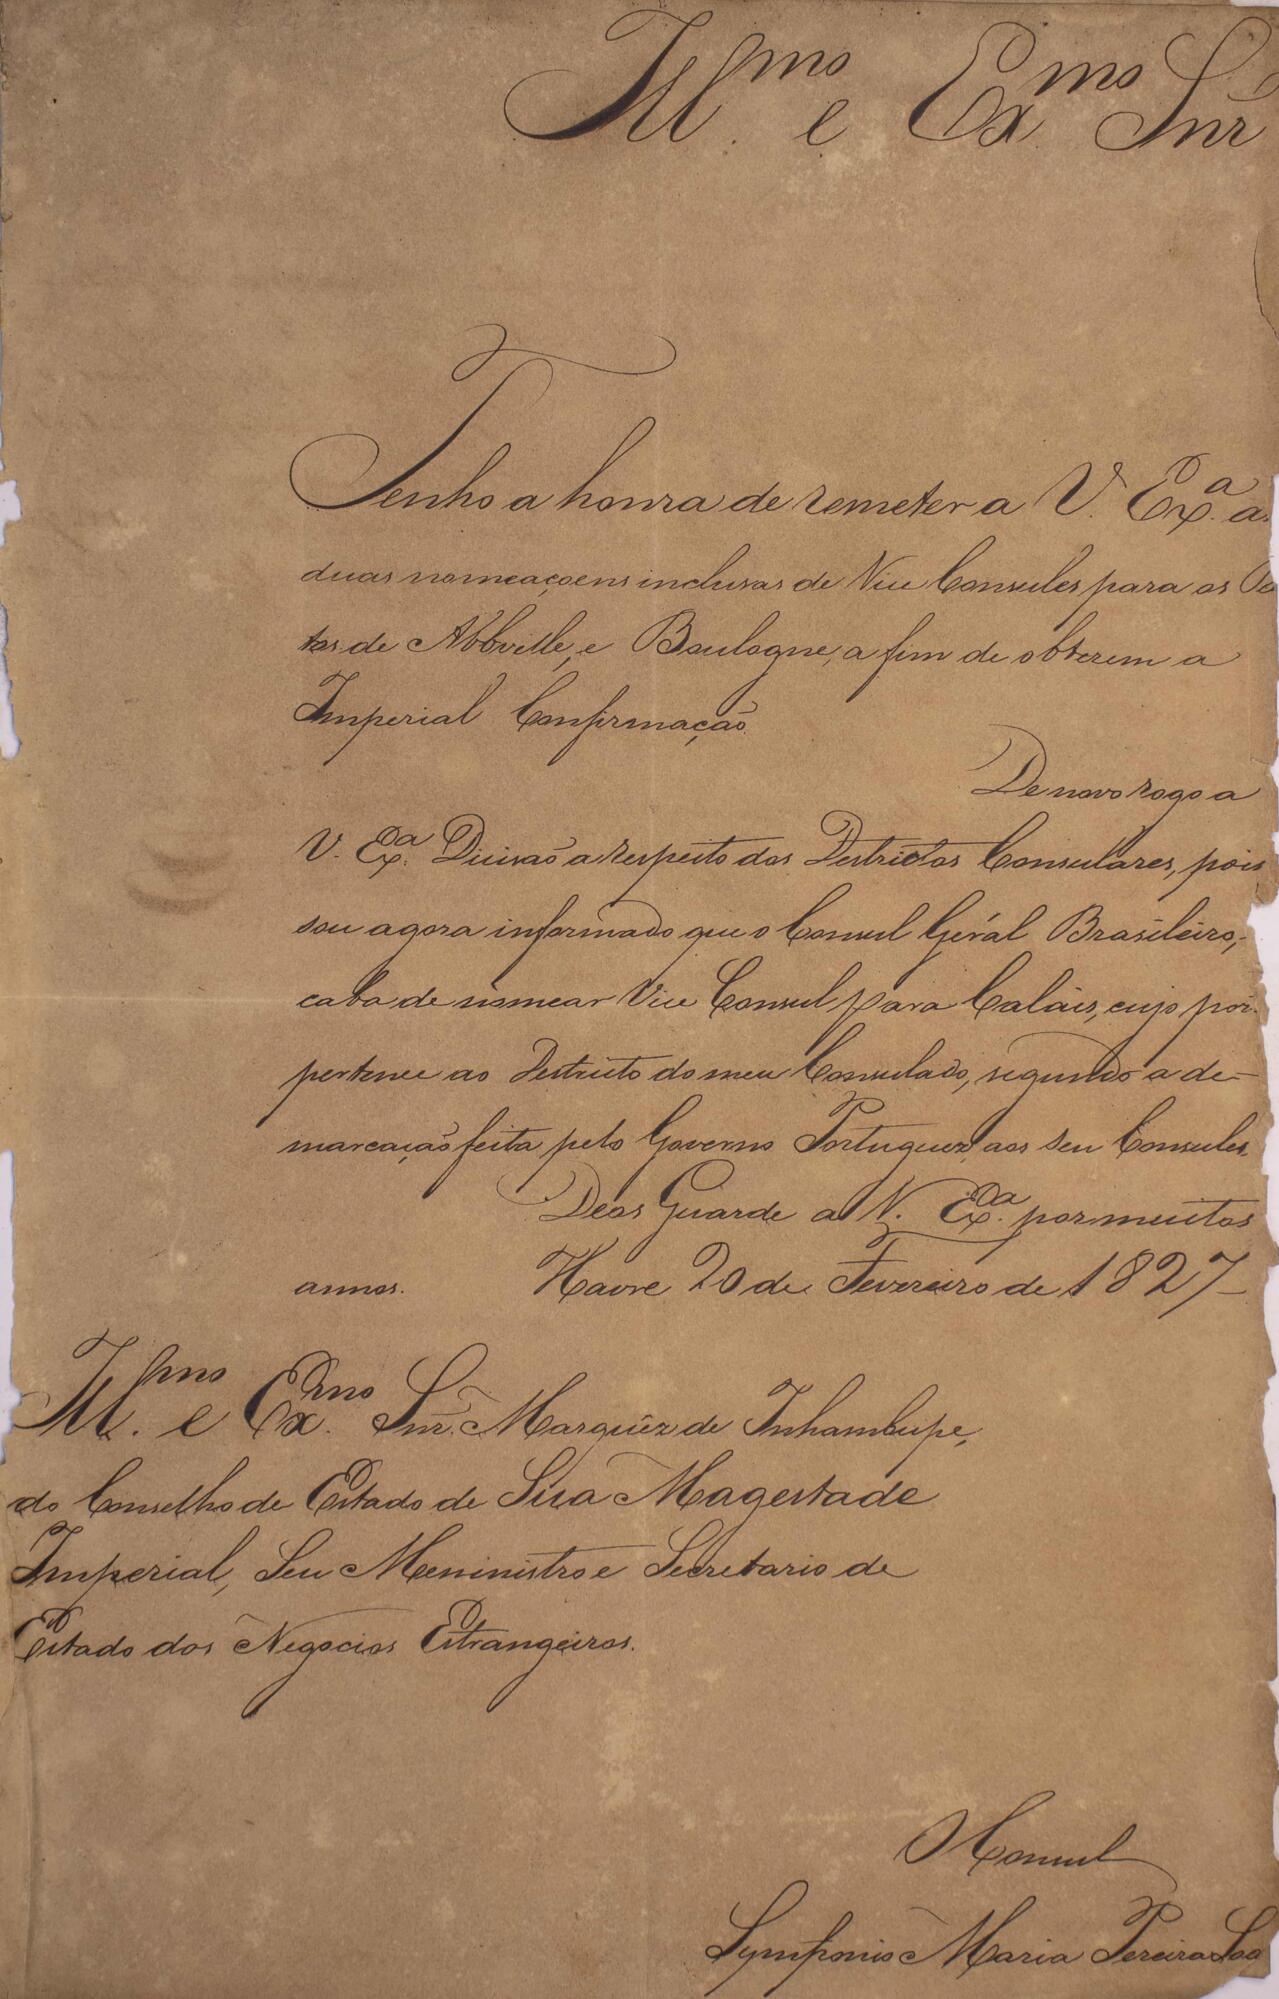 Ill.mo e Ex.mo Snr
Tenho a honra de remeter a V. Ex.a as
duas nomeaçoens inclusas de Vice Consules para os Po
tos de Abbville, e Boulogne, a fim de obterem a
Imperial Confirmação.
De novo rogo a
V. Ex.a Dicisaõ a respeito dos Destrictos Consulares, pois
sou agora informado que o Consul Géral Brasileiro,
caba de nomear Vice Consul para Calais, cujo por
pertence ao Destricto do meu Consulado, segundo a de-
marcação feita pelo Governo Portuguez, aos seu Consules.
Deos Guarde a V. Ex.a por muitos
annos. Havre 20 de Fevereiro de 1827-
Ill.mo e Ex.mo Snr. Marquêz de Inhambupe,
do Conselho de Estado de Sua Magestade
Imperial, Seu Meninistro e Secretario de
Estado dos Negocios Estrangeiros.
O Consul
Symfronio Maria Pereira